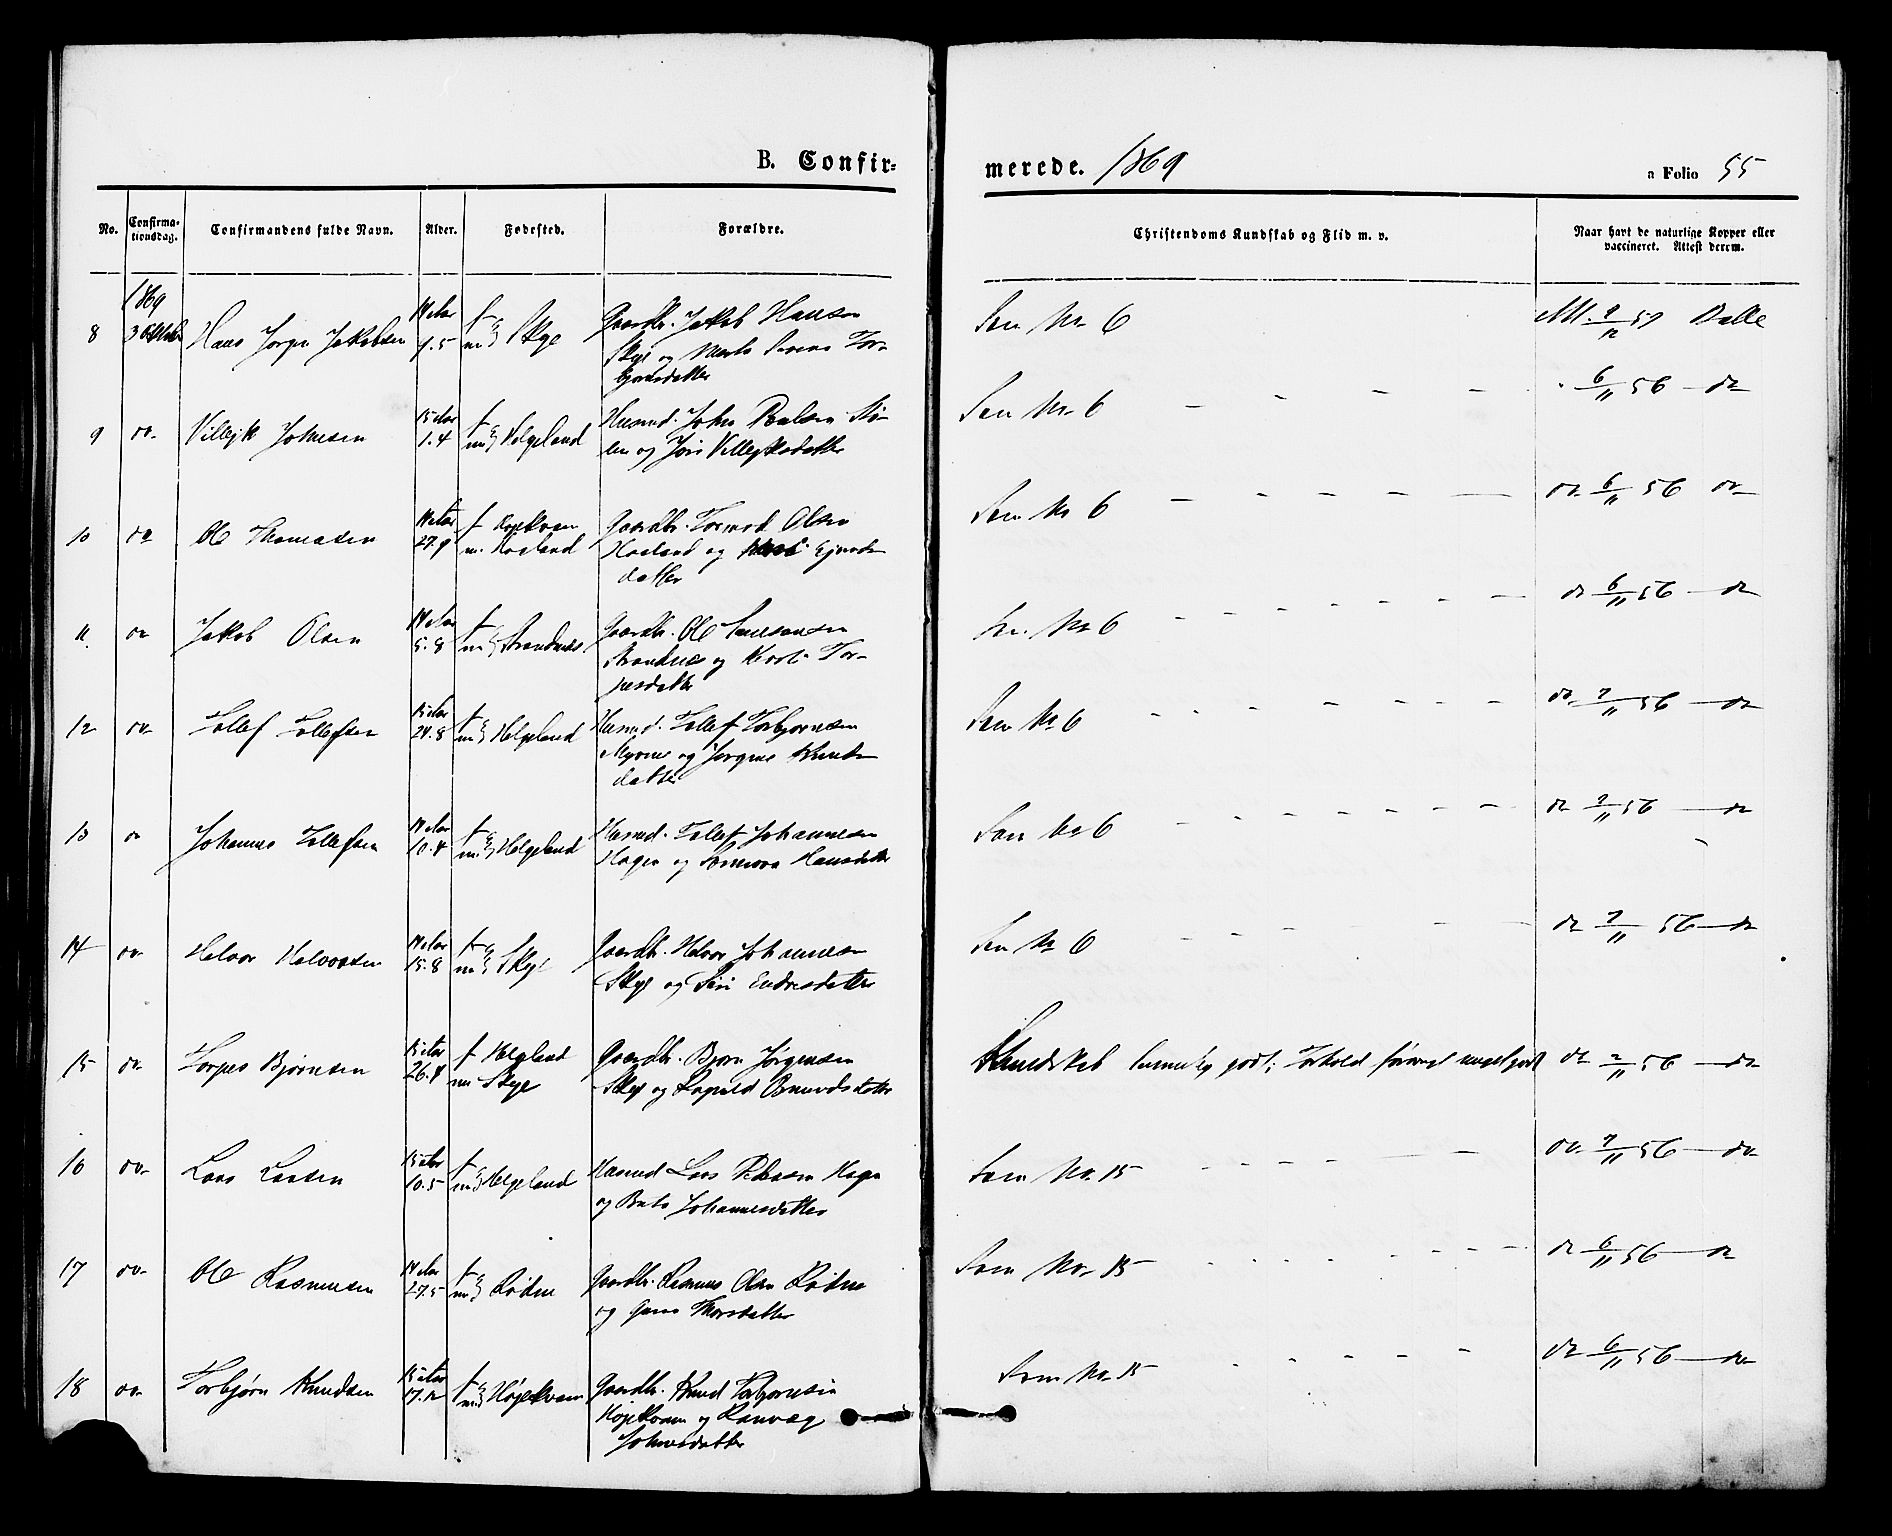 B. Confir=
merede. 1869
a Folio 55
No.
Confirma-
tionsdag.
Confirmandens fulde Navn.
Alder.
Fødested.
Forældre.
Christendoms Kundskab og Flid m. v.
Naar havt de naturlige Kopper eller
vaccineret. Attest derom.
1869
8 3 Oktober Hans Jørgen Jakobsen 14 Aar 7.5 f og m Skye Gaardbr. Jakob Hansen
Skye og Marta Tor-
bjørnsdatter
Som No 6 9/12 57 Balle
9 do. Villejk Johnsen 15 Aar 1.4 f og m Helgeland Husmd. John Poulsen
og Jori Villejksdatter
Som No 6 6/11 56 do
10 do Ole Thomasen 14 Aar 27.9 f. m. Gaardbr. Tormod Olsen
og
datter
Som No 6 do 6/11 56 do
11. do Jakob Olsen 14 Aar 5.8 f og m Strandnæs Gaardbr. Ole
Strandnæs og Tor-
pesdatter
No 6 do 6/11 56 do
12 do. Tollef Tollefsen 15 Aar 24.8 f og m Helgeland Husmd. Tollef Torbjørnsen
Myrene og Jørgine Knuds
datter
Som No 6 do 7/11 56 do
13 do Johannes Tollefsen 14 Aar 10.4 f og m Helgeland Husmd. Tollef Johannesen
Hagen og Hansdatter
Som No 6 do 7/11 56 do
14 do. Halvor Halvorsen 14 Aar 15.8 f og m Skye Gaardbr. Halvor Johannesen
Skye og Siri Endresdatter
Som No 6 do 7/11 56 do
15 do. Torpes Bjørnsen 15 Aar 26.4 f Helgeland m Skye Gaardbr. Bjørn Jørgensen
Skye og Ragnild Osmundsdatter
Kundskab temmelig godt; Forhold meget godt do 2/11 56 do
16 do. Lars Larsen 15 Aar 10.5 f og m Helgeland Husmd Lars Pedersen Hagen
og Berta Johannesdatter
Som No. 15 do. 7/11 56 do
17 do. Ole Rasmusen 14 Aar 27.5 f og m Rødne Gaardbr. Rasmus Olsen Rødne
og Thorsdatter
Som No. 15 do 6/11 56 do
18 do. Torbjørn Knudsen 15 Aar 17.12 f og m Højekvam Gaardbr. Knud Torbjørnsen
Højekvam og Ranveg
Johnsdatter
Som No. 15 do 6/11 56 do